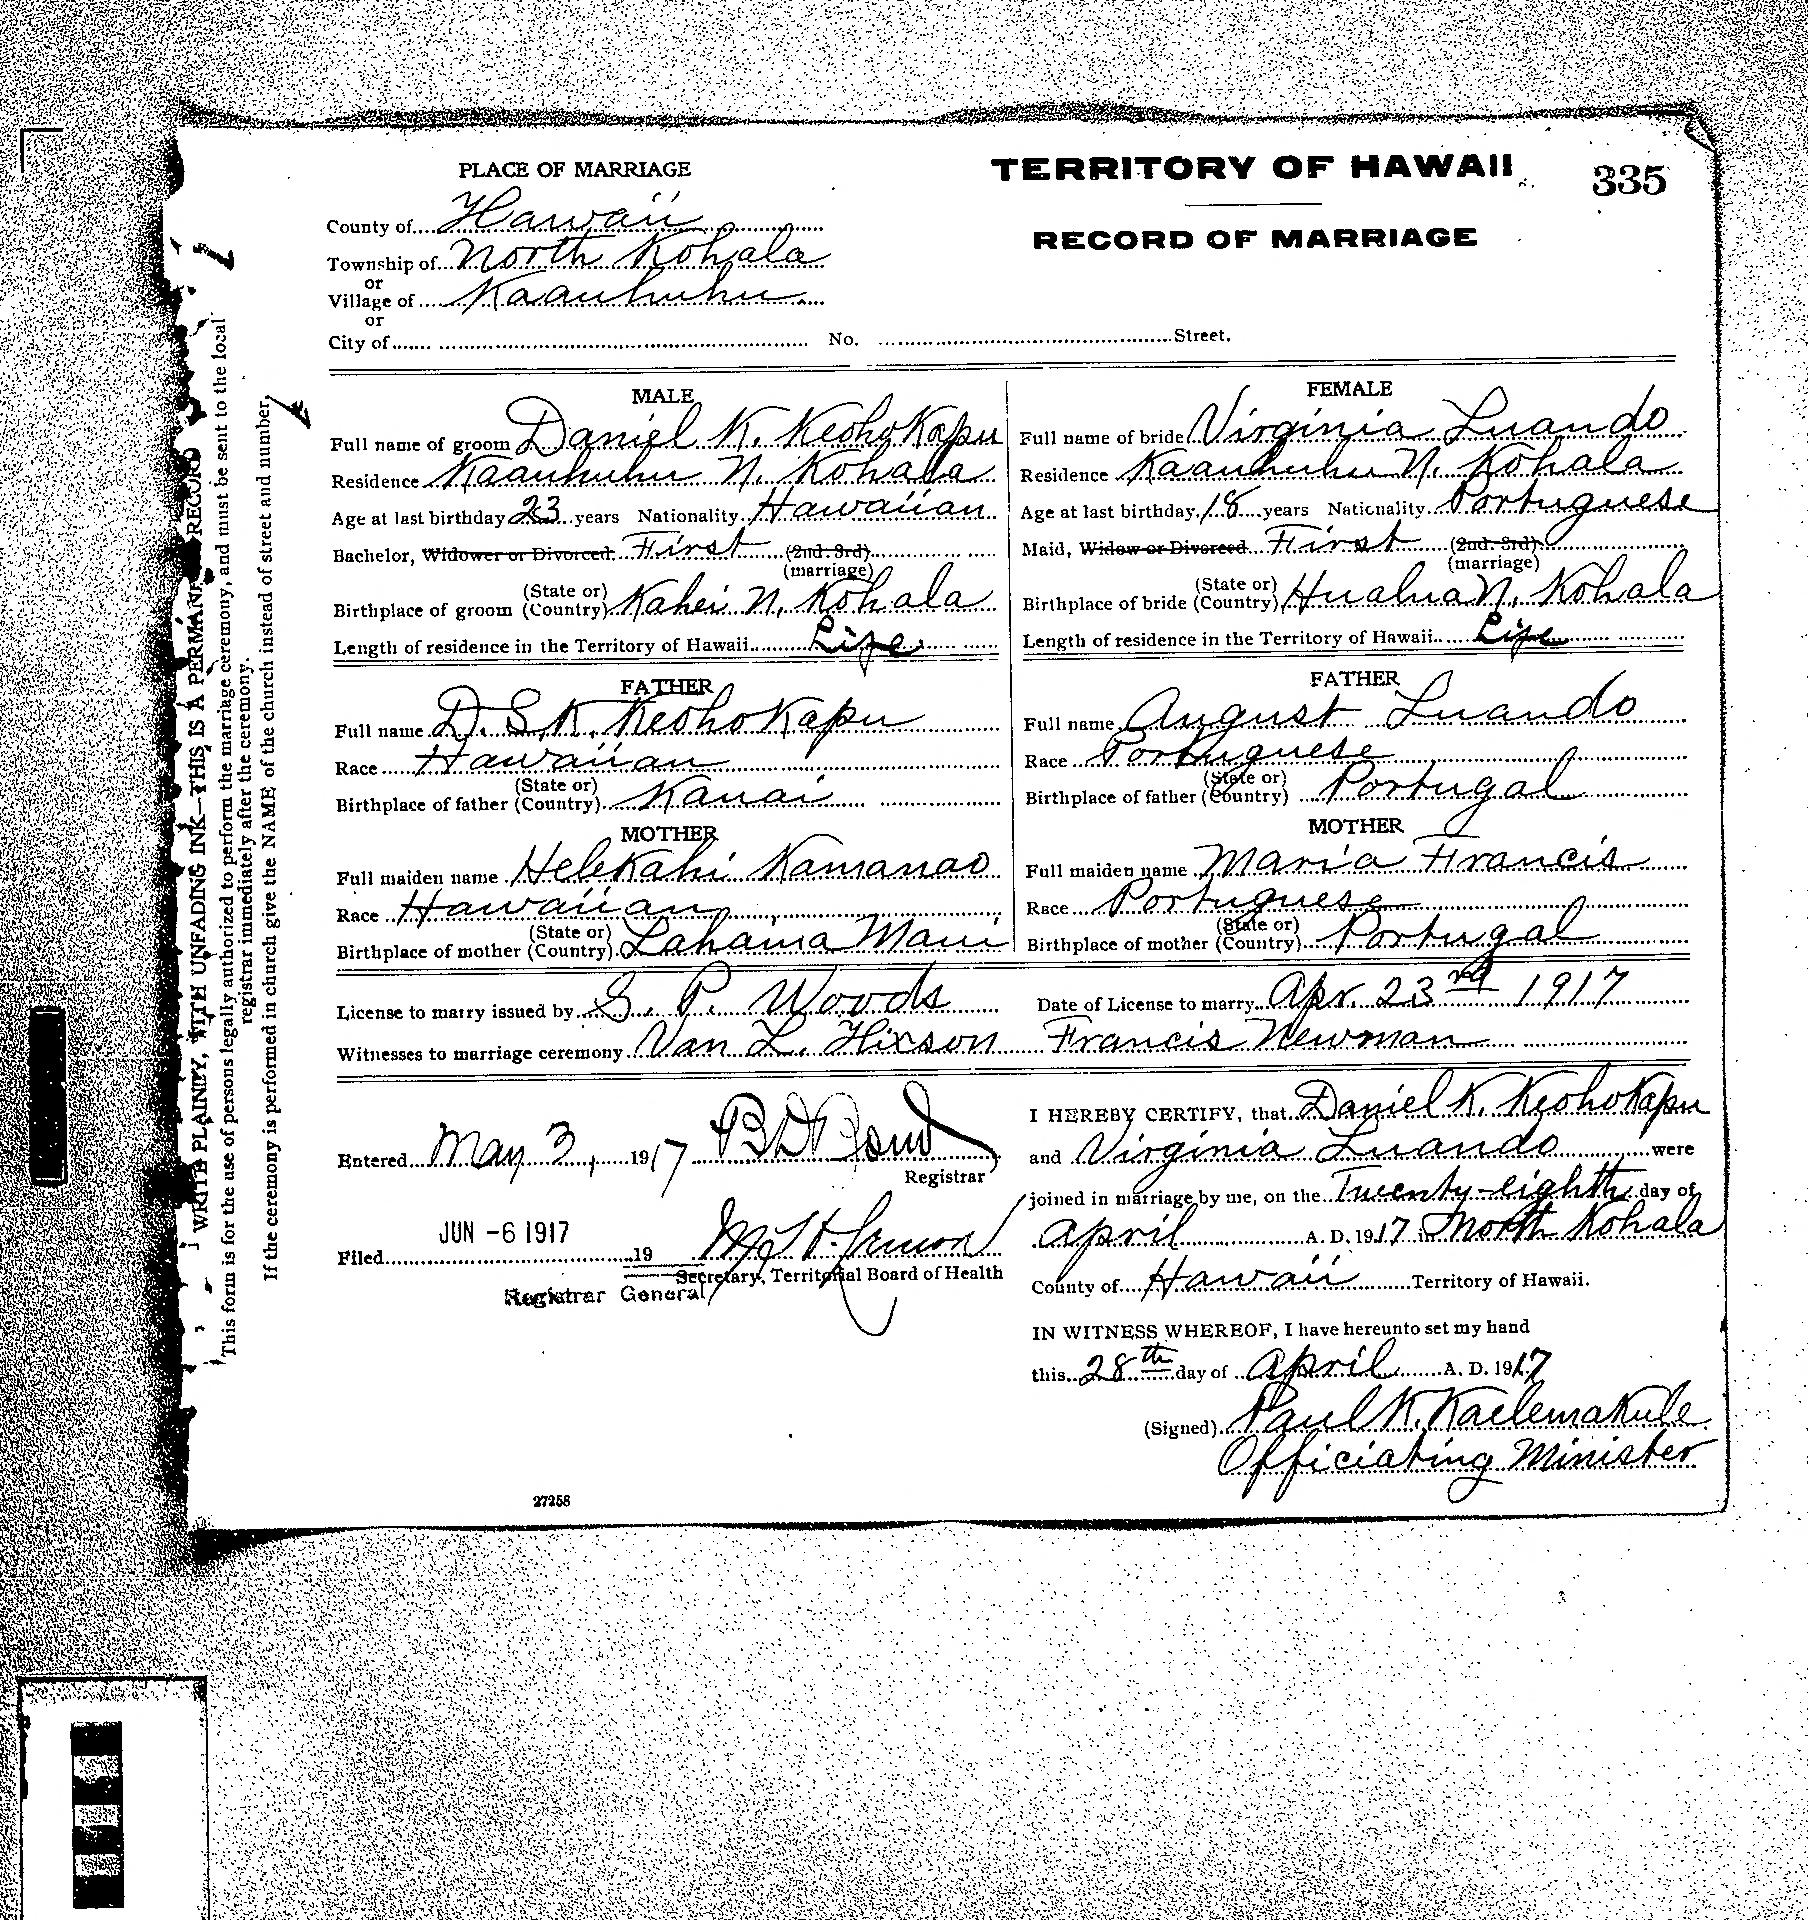 PLACE OF MARRIAGE
TERRITORY OF HAWAII
335
RECORD OF MARRIAGE
County of Hawaii
Township of North Kohala
or
Village of Kaauhuhu
or
City of No. Street.
MALE
Full name of groom Daniel K. Keohokapu
Residence Kaauhuhu N. Kohala
Age at last birthday 23 years Nationality Hawaiian
Bachelor, Widower or Divorced. First (2nd. 3rd)
(marriage)
Birthplace of groom (State or) (Country) Kahei N. Kohala
Length of residence in the Territory of Hawaii Life
FATHER
Full name D. S. K. Keohokapu
Race Hawaiian
Birthplace of father (State or) (Country) Kauai
MOTHER
Full maiden name Helekahi Kamanao
Race Hawaiian
Birthplace of mother (State or) (Country) Lahaina Maui
FEMALE
Full name of bride Virginia Luando
Residence Kaauhuhu N. Kohala
Age at last birthday 18 years Nationality Portuguese
Maid, Widow or Divorced First (2nd. 3rd)
(marriage)
Birthplace of bride (State or) (Country) Hualua N. Kohala
Length of residence in the Territory of Hawaii Life
FATHER
Full name August Luando
Race Portuguese
Birthplace of father (State or) (Country) Portugal
MOTHER
Full maiden name Maria Francis
Race Portuguese
Birthplace of mother (State or) (Country) Portugal
License to marry issued by S. P. Woods Date of License to marry Apr. 23rd 1917
Witnesses to marriage ceremony Van L. Hixson Francis Newman
Entered May 3, 1917 B D Bond
Registrar
Filed JUN -6 1917 19
Secretary, Territorial Board of Health
Registrar General
I HEREBY CERTIFY, that Daniel K. Keohokapu
and Virginia Luando were
joined in marriage by me, on the Twenty-eighth day of
April A. D. 1917 North Kohala
County of Hawaii Territory of Hawaii.
IN WITNESS WHEREOF, I have hereunto set my hand
this 28th day of April A. D. 1917
(Signed) Paul K. Kaelemakule
Officiating Minister
27258
WRITE PLAINLY, WITH UNFADING INK—THIS IS A PERMANENT RECORD
This form is for the use of persons legally authorized to perform the marriage ceremony, and must be sent to the local
registrar immediately after the ceremony.
If the ceremony is performed in church give the NAME of the church instead of street and number.